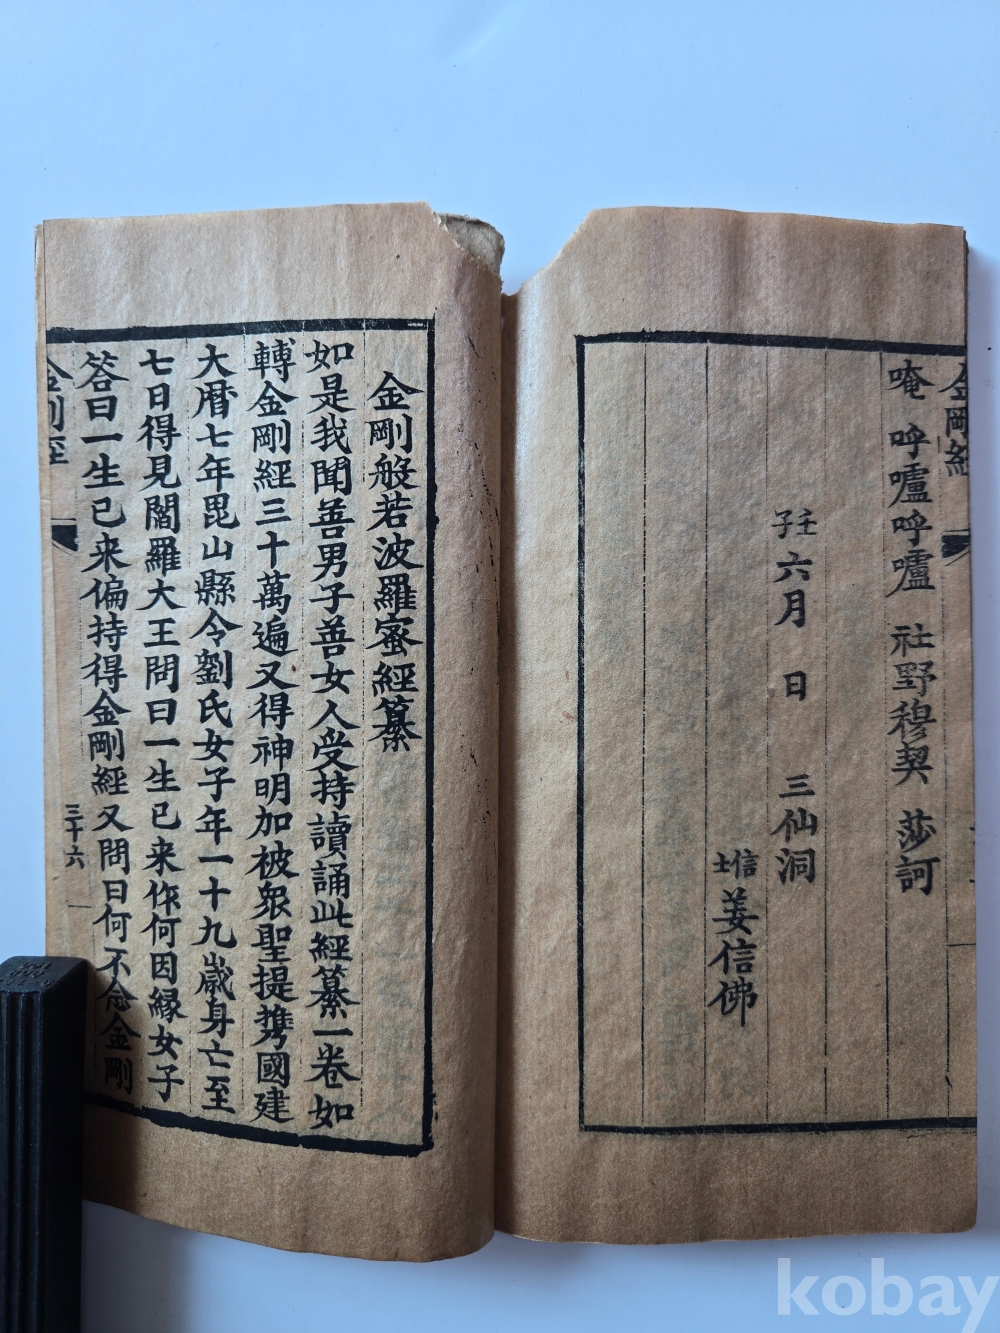 金剛經
唵 呼嚧呼嚧 社野穆契 莎訶
壬子六月 日 三仙洞
信士姜信佛
金剛般若波羅蜜經纂
如是我聞善男子善女人受持讀誦此經纂一卷如
轉金剛經三十萬遍又得神明加被衆聖提携國建
大曆七年毘山縣令劉氏女子年一十九歲身亡至
七日得見閻羅大王問曰一生已来作何因緣女子
答曰一生已来偏持得金剛經又問曰何不念金剛
金剛經
三十六
kobay